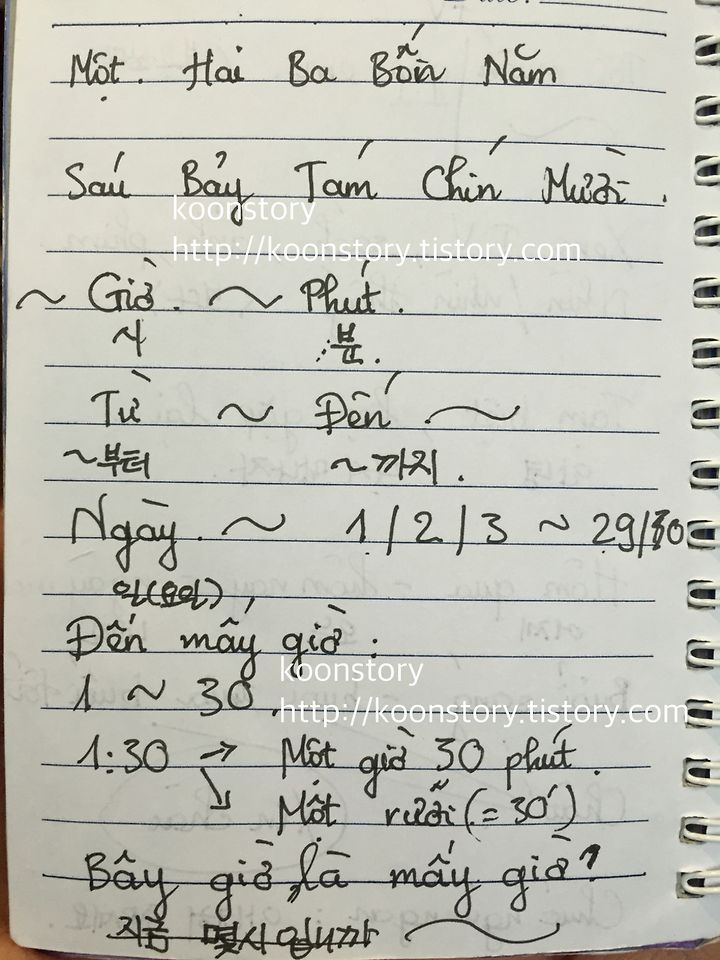 Một. Hai Ba Bốn Năm
Sáu Bảy Tám Chín Mười.
koonstory
http://koonstory.tistory.com
~ Giờ. ~ Phút.
시 분.
Từ ~ Đến ~
~부터 ~까지.
Ngày. ~ 1/2/3 ~ 29/30
일(요일)
Đến mấy giờ:
koonstory
1 ~ 30.
http://koonstory.tistory.com
1:30 → Một giờ 30 phút.
↘ Một rưỡi (= 30')
Bây giờ là mấy giờ?
지금 몇시입니까 ~